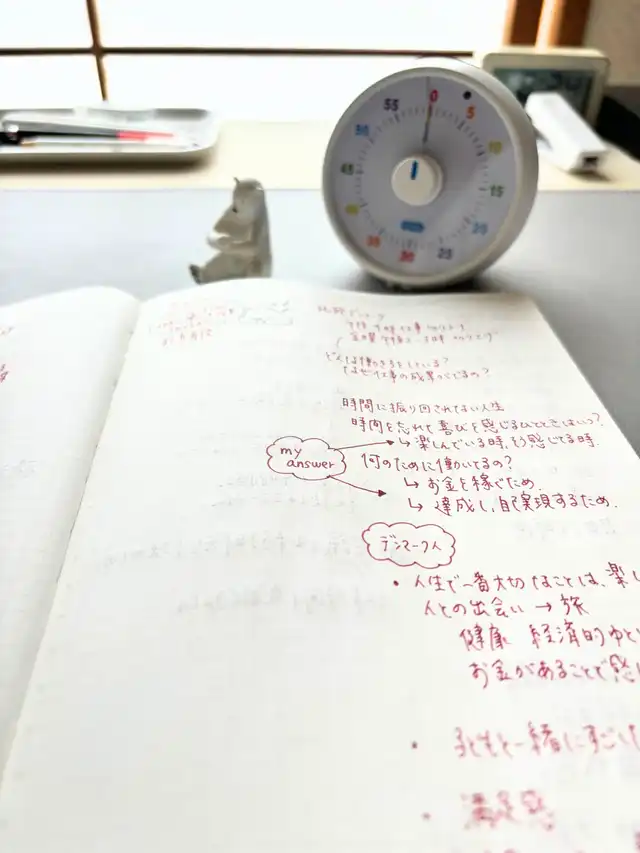 55
0
5
50
10
45
15
40
20
35
30
25
どんな働き方をしている?
なぜ仕事の成果がでるの?
時間に振り回されてない人生
時間を忘れて喜びを感じるひとときはいつ?
↳ 楽しんでいる時、そう感じてる時.
my
answer
何のために働いてるの?
↳ お金を稼ぐため.
↳ 達成し、自己実現するため.
デンマーク人
・人生で一番大切なことは、楽し
人との出会い → 旅
健康 経済的ゆと
お金があることで感
・子どもと一緒にすごし
・満足感